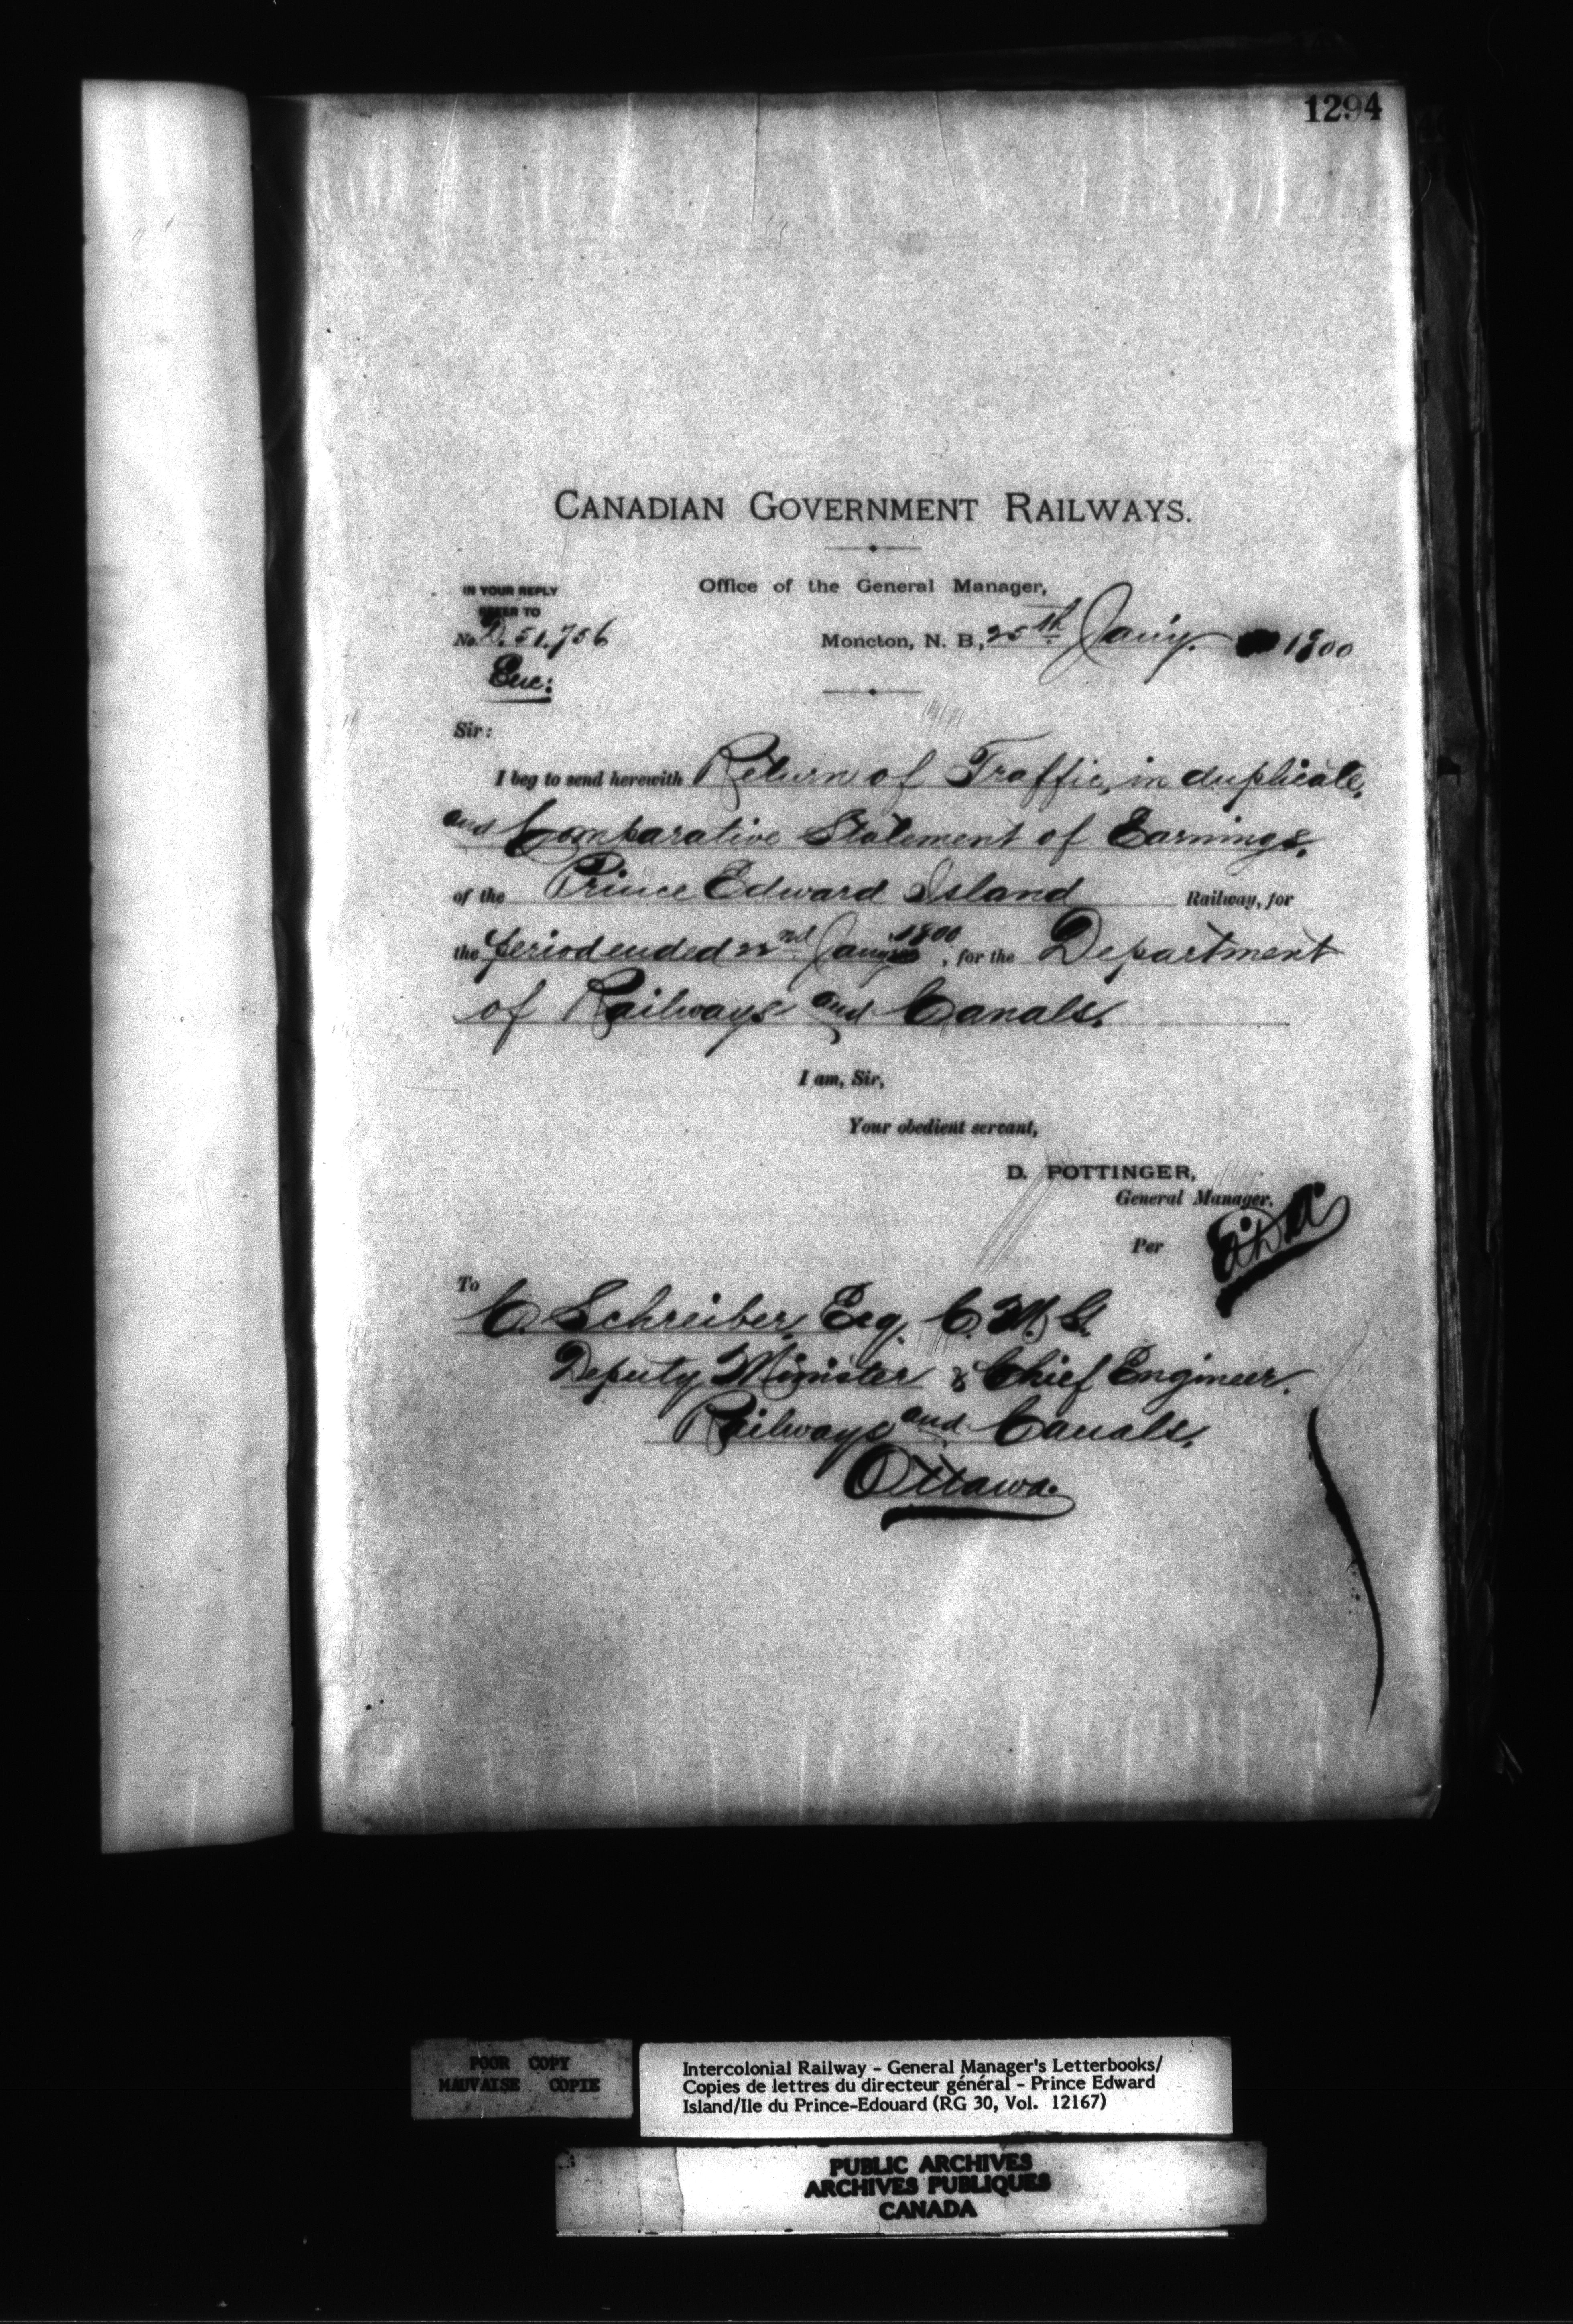 1294
CANADIAN GOVERNMENT RAILWAYS.
Office of the General Manager,
IN YOUR REPLY
REFER TO
No. D. 51.756
Moncton, N. B., 25th Jany. 1900
Enc:
Sir:
I beg to send herewith Return of Traffic, in duplicate,
and Comparative Statement of Earnings,
of the Prince Edward Island Railway, for
the period ended 22nd Jany 1900, for the Department
of Railways and Canals.
I am, Sir,
Your obedient servant,
D. POTTINGER,
General Manager.
Per
To
C. Schreiber, Esq. C. M. G.
Deputy Minister & Chief Engineer.
Railways and Canals,
Ottawa.
POOR COPY
MAUVAISE COPIE
Intercolonial Railway - General Manager's Letterbooks/
Copies de lettres du directeur général - Prince Edward
Island/Ile du Prince-Edouard (RG 30, Vol. 12167)
PUBLIC ARCHIVES
ARCHIVES PUBLIQUES
CANADA